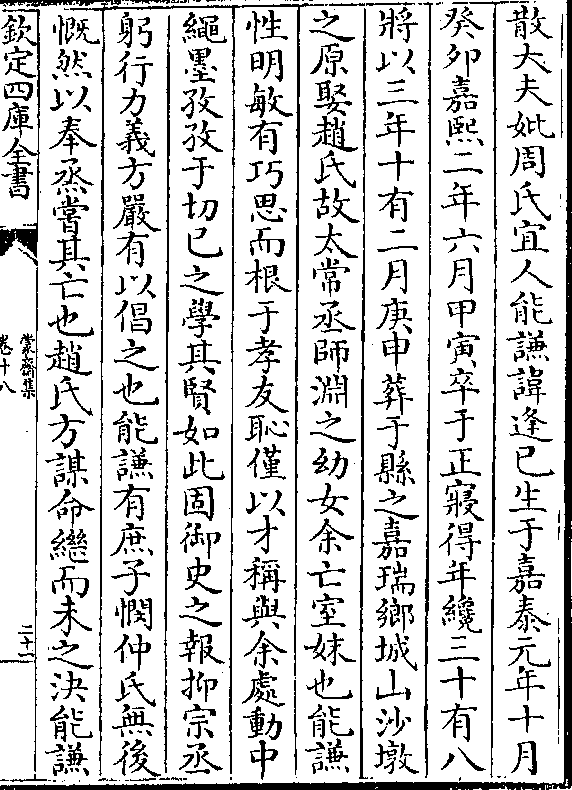 散大夫妣周氏宜人能謙諱逢已生于嘉泰元年十月
癸夘嘉熙二年六月甲寅卒于正寢得年纔三十有八
將以三年十有二月庚申葬于縣之嘉瑞鄉城山沙墩
之原娶趙氏故太常丞師淵之幼女余亡室妹也能謙
性明敏有巧思而根于孝友恥僅以才稱與余處動中
繩墨孜孜于切已之學其賢如此固御史之報抑宗丞
躬行力義方嚴有以倡之也能謙有庶子憫仲氏無後
慨然以奉烝嘗其亡也趙氏方謀命繼而未之決能謙
欽定四庫全書
蒙齋集
卷十八
二十一